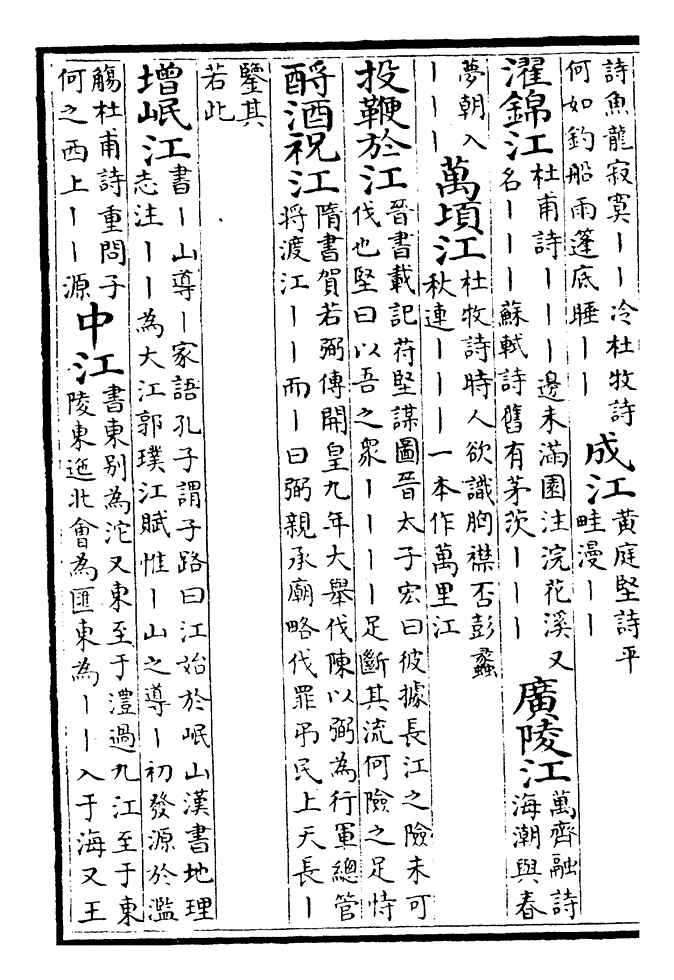 詩魚龍寂寞丨丨冷杜牧詩
何如釣船雨蓬底睡丨丨
成江
黄庭堅詩平
畦漫丨丨
濯錦江
杜甫詩丨丨丨邊未滿園注浣花溪又
名丨丨丨蘇軾詩舊有茅茨丨丨丨
廣陵江
萬齊融詩
海潮與春
夢朝入
丨丨丨
萬頃江
杜牧詩時人欲識胸襟否彭蠡
秋連丨丨丨一本作萬里江
投鞭於江
晉書載記苻堅謀圖晉太子宏曰彼據長江之險未可
伐也堅曰以吾之衆丨丨丨丨足斷其流何險之足恃
酹酒祝江
隋書賀若弼傳開皇九年大舉伐陳以弼為行軍總管
将渡江丨丨而丨曰弼親承廟略伐罪弔民上天長丨
鑒其
若此
增岷江
書丨山導丨家語孔子謂子路曰江始於岷山漢書地理
志注丨丨為大江郭璞江賦惟丨山之導丨初發源於濫
觴杜甫詩重問子
何之西上丨丨源
中江
書東别為沱又東至于澧過九江至于東
陵東迆北會為匯東為丨丨入于海又王